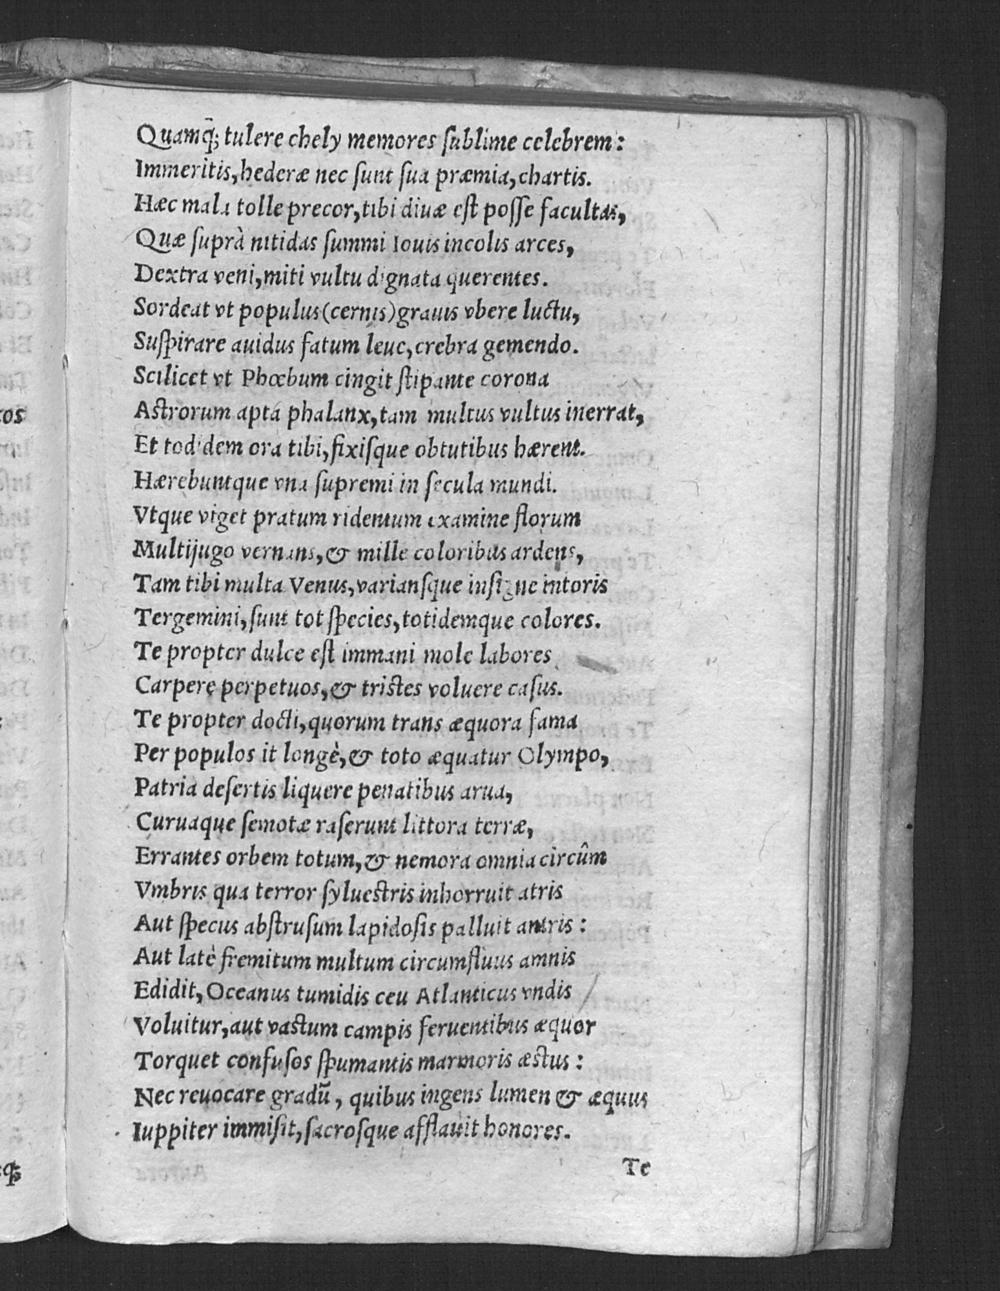 Quamq̃; tulere chely memores ſublime celebrem:
Immeritis, hederæ nec ſunt ſua præmia, chartis.
Hæc mala tolle precor, tibi diuæ eſt poſſe facultas,
Quæ ſuprà nitidas ſummi Iouis incolis arces,
Dextra veni, miti vultu dignata querentes.
Sordeat vt populus (cernis) grauis vbere luctu,
Suſpirare auidus fatum leue, crebra gemendo.
Scilicet vt Phœbum cingit ſtipante corona
Aſtrorum apta phalanx, tam multus vultus inerrat,
Et totidem ora tibi, fixiſque obtutibus hærent.
Hærebuntque vna ſupremi in ſecula mundi.
Vtque viget pratum ridentum examine florum
Multijugo vernans, & mille coloribus ardens,
Tam tibi multa Venus, varianſque inſigne nitoris
Tergemini, ſunt tot ſpecies, totidemque colores.
Te propter dulce eſt immani mole labores
Carpere perpetuos, & triſtes voluere caſus.
Te propter docti, quorum trans æquora fama
Per populos it longè, & toto æquatur Olympo,
Patria deſertis liquere penatibus arua,
Curuaque ſemotæ raſerunt littora terræ,
Errantes orbem totum, & nemora omnia circũm
Vmbris qua terror ſylueſtris inhorruit atris
Aut ſpecus abſtruſum lapidoſis palluit antris:
Aut latè fremitum multum circumfluus amnis
Edidit, Oceanus tumidis ceu Atlanticus vndis
Voluitur, aut vaſtum campis feruentibus æquor
Torquet confuſos ſpumantis marmoris æſtus:
Nec reuocare gradũ, quibus ingens lumen & æquus
Iuppiter immiſit, ſacroſque afflauit honores.
Te